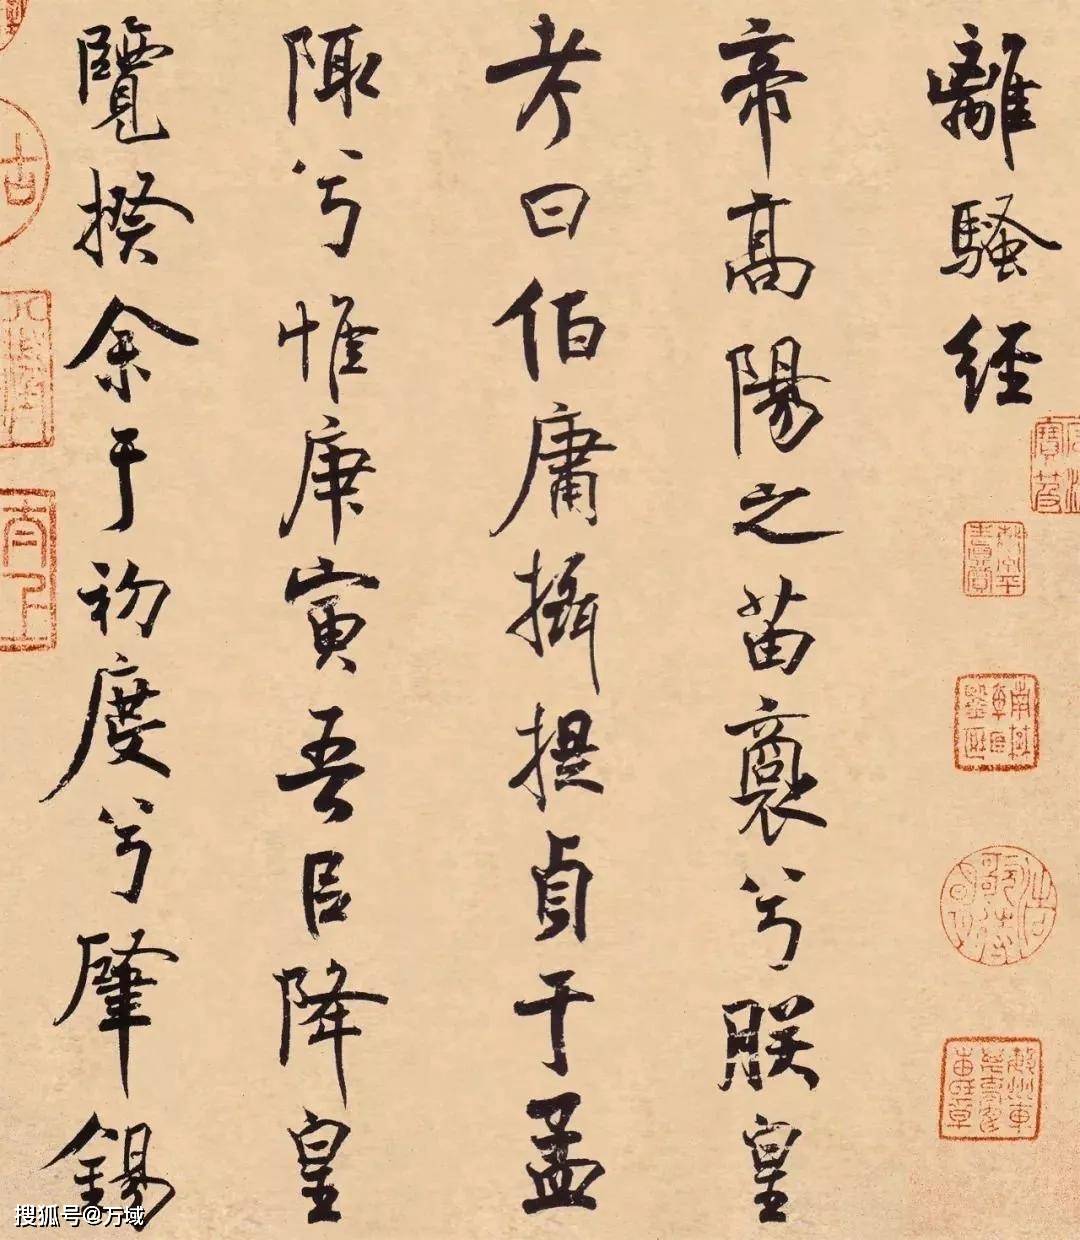 離騷經
帝高陽之苗裔兮朕皇
考曰伯庸攝提貞于孟
陬兮惟庚寅吾㠯降皇
覽揆余于初度兮肇錫
搜狐号@万域